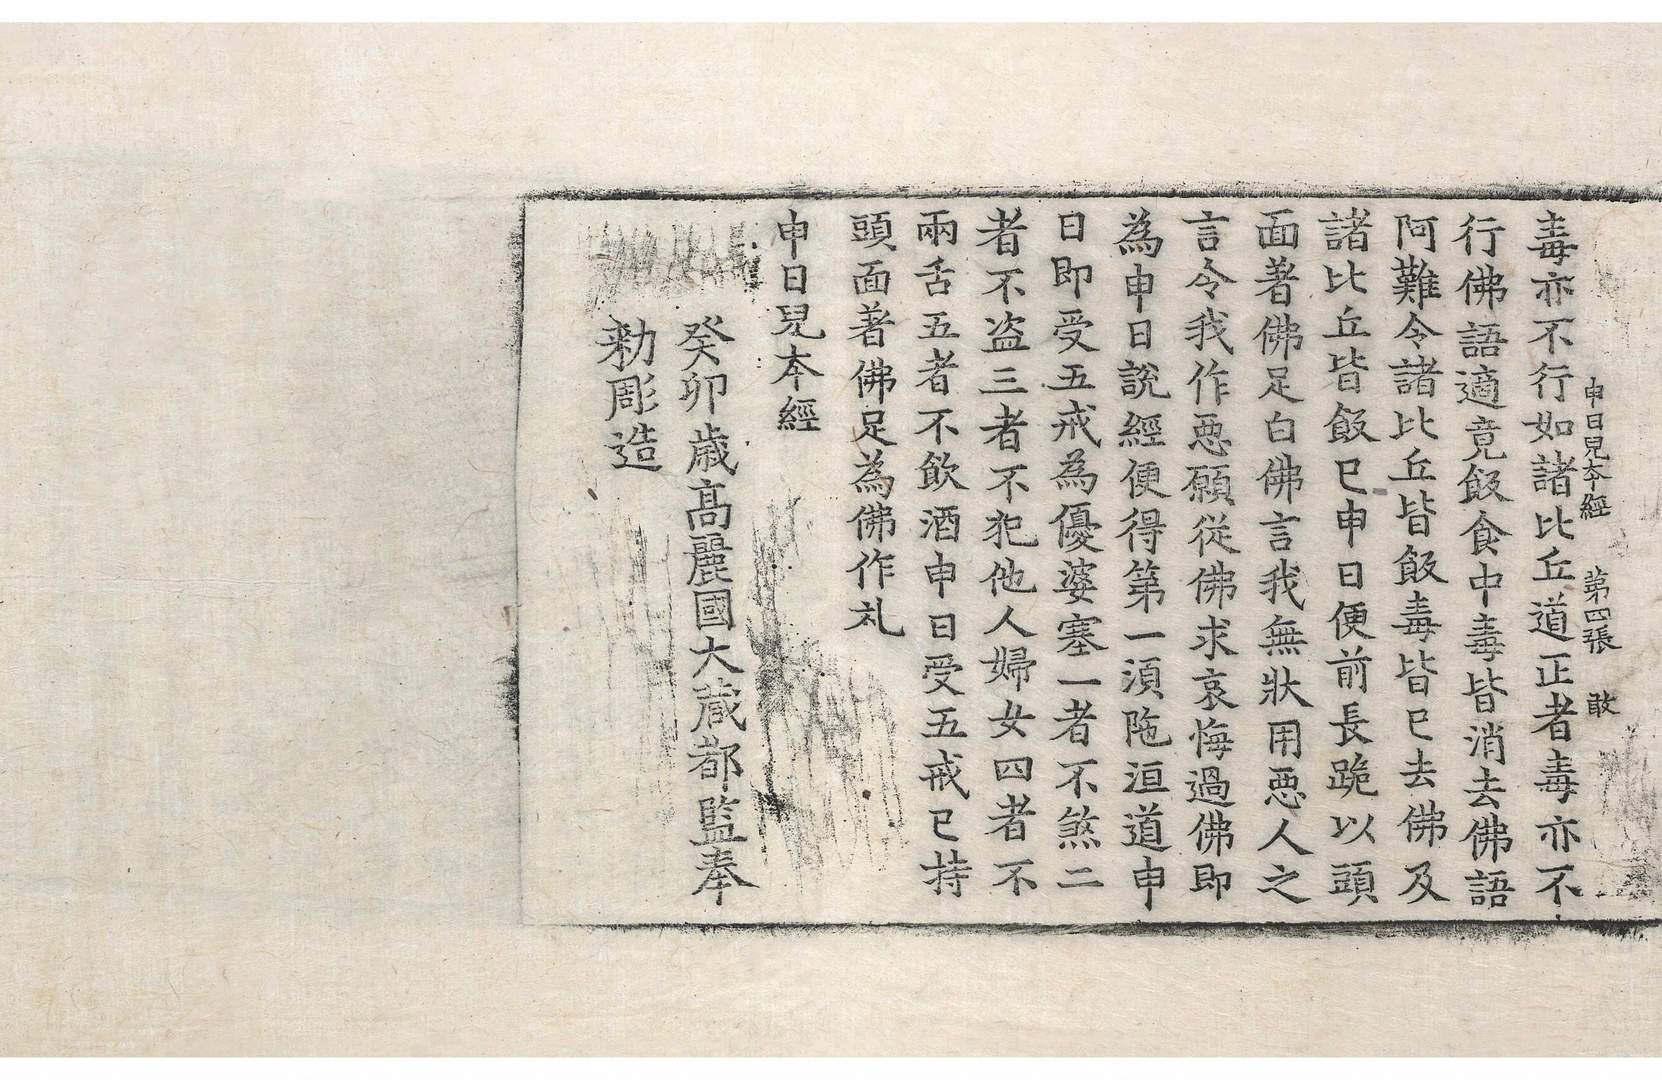 申日兒夲經　第四張　敢
毒亦不行如諸比丘道正者毒亦不
行佛語適竟飯食中毒皆消去佛語
阿難令諸比丘皆飯毒皆已去佛及
諸比丘皆飯已申日便前長跪以頭
面著佛足白佛言我無狀用惡人之
言令我作惡願從佛求哀悔過佛即
為申日說經便得第一須陁洹道申
日即受五戒為優婆塞一者不煞二
者不盗三者不犯他人婦女四者不
兩舌五者不飲酒申日受五戒已持
頭面著佛足為佛作礼
申日兒夲經
癸卯歳高麗國大蔵都監奉
勑彫造